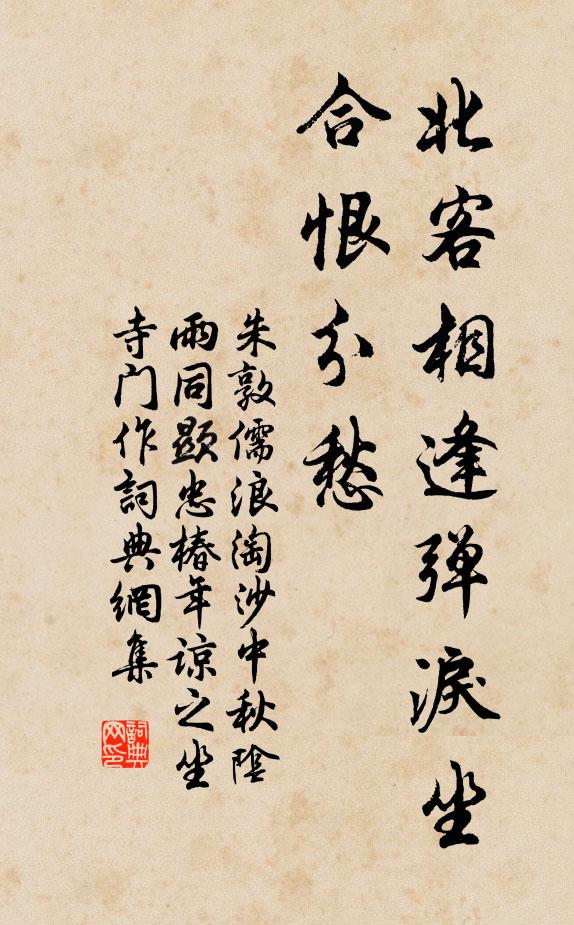 北客相逢弹淚坐
合恨分愁
朱敦儒浪淘沙中秋陰
雨同顯忠椿年谅之坐
寺门作詞典網集
詞典網印